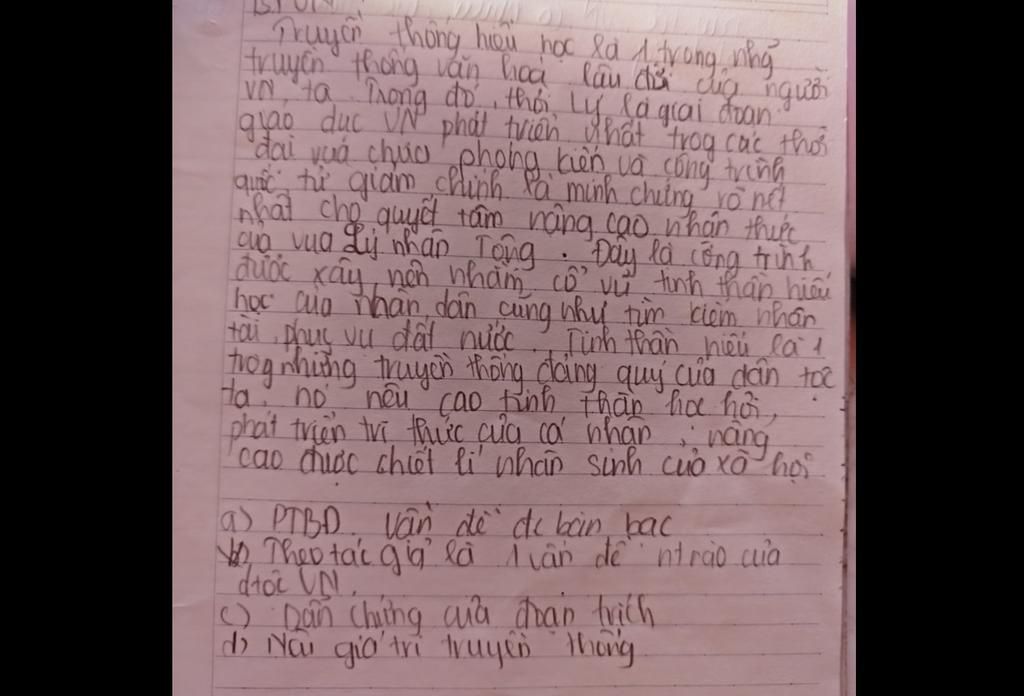 Truyền thống hiếu học là 1 trong nhg
truyền thống văn hoá lâu đời của người
VN ta. Trong đó, thời Lý là giai đoạn
giáo dục VN phát triển nhất trog các thời
đại vuá chúa phong kiến và công trình
quốc tử giám chính là minh chứng rõ nét
nhất cho quyết tâm nâng cao nhận thức
của vua Lý Nhân Tông. Đây là công trình
được xây nên nhằm cổ vũ tinh thần hiếu
học của nhân dân cũng như tìm kiếm nhân
tài phục vụ đất nước. Tinh thần hiếu là 1
trog những truyền thống đáng quý của dân tộc
ta. nó nêu cao tinh thần học hỏi,
phát triển tri thức của cá nhân, nâng
cao được chiết lí nhân sinh của xã hội
a) PTBĐ. vấn đề đc bàn bạc
b) Theo tác giả là 1 vấn đề ntnào của
dtộc VN.
c) Dẫn chứng của đoạn trích
d) Nêu giá trị truyền thống